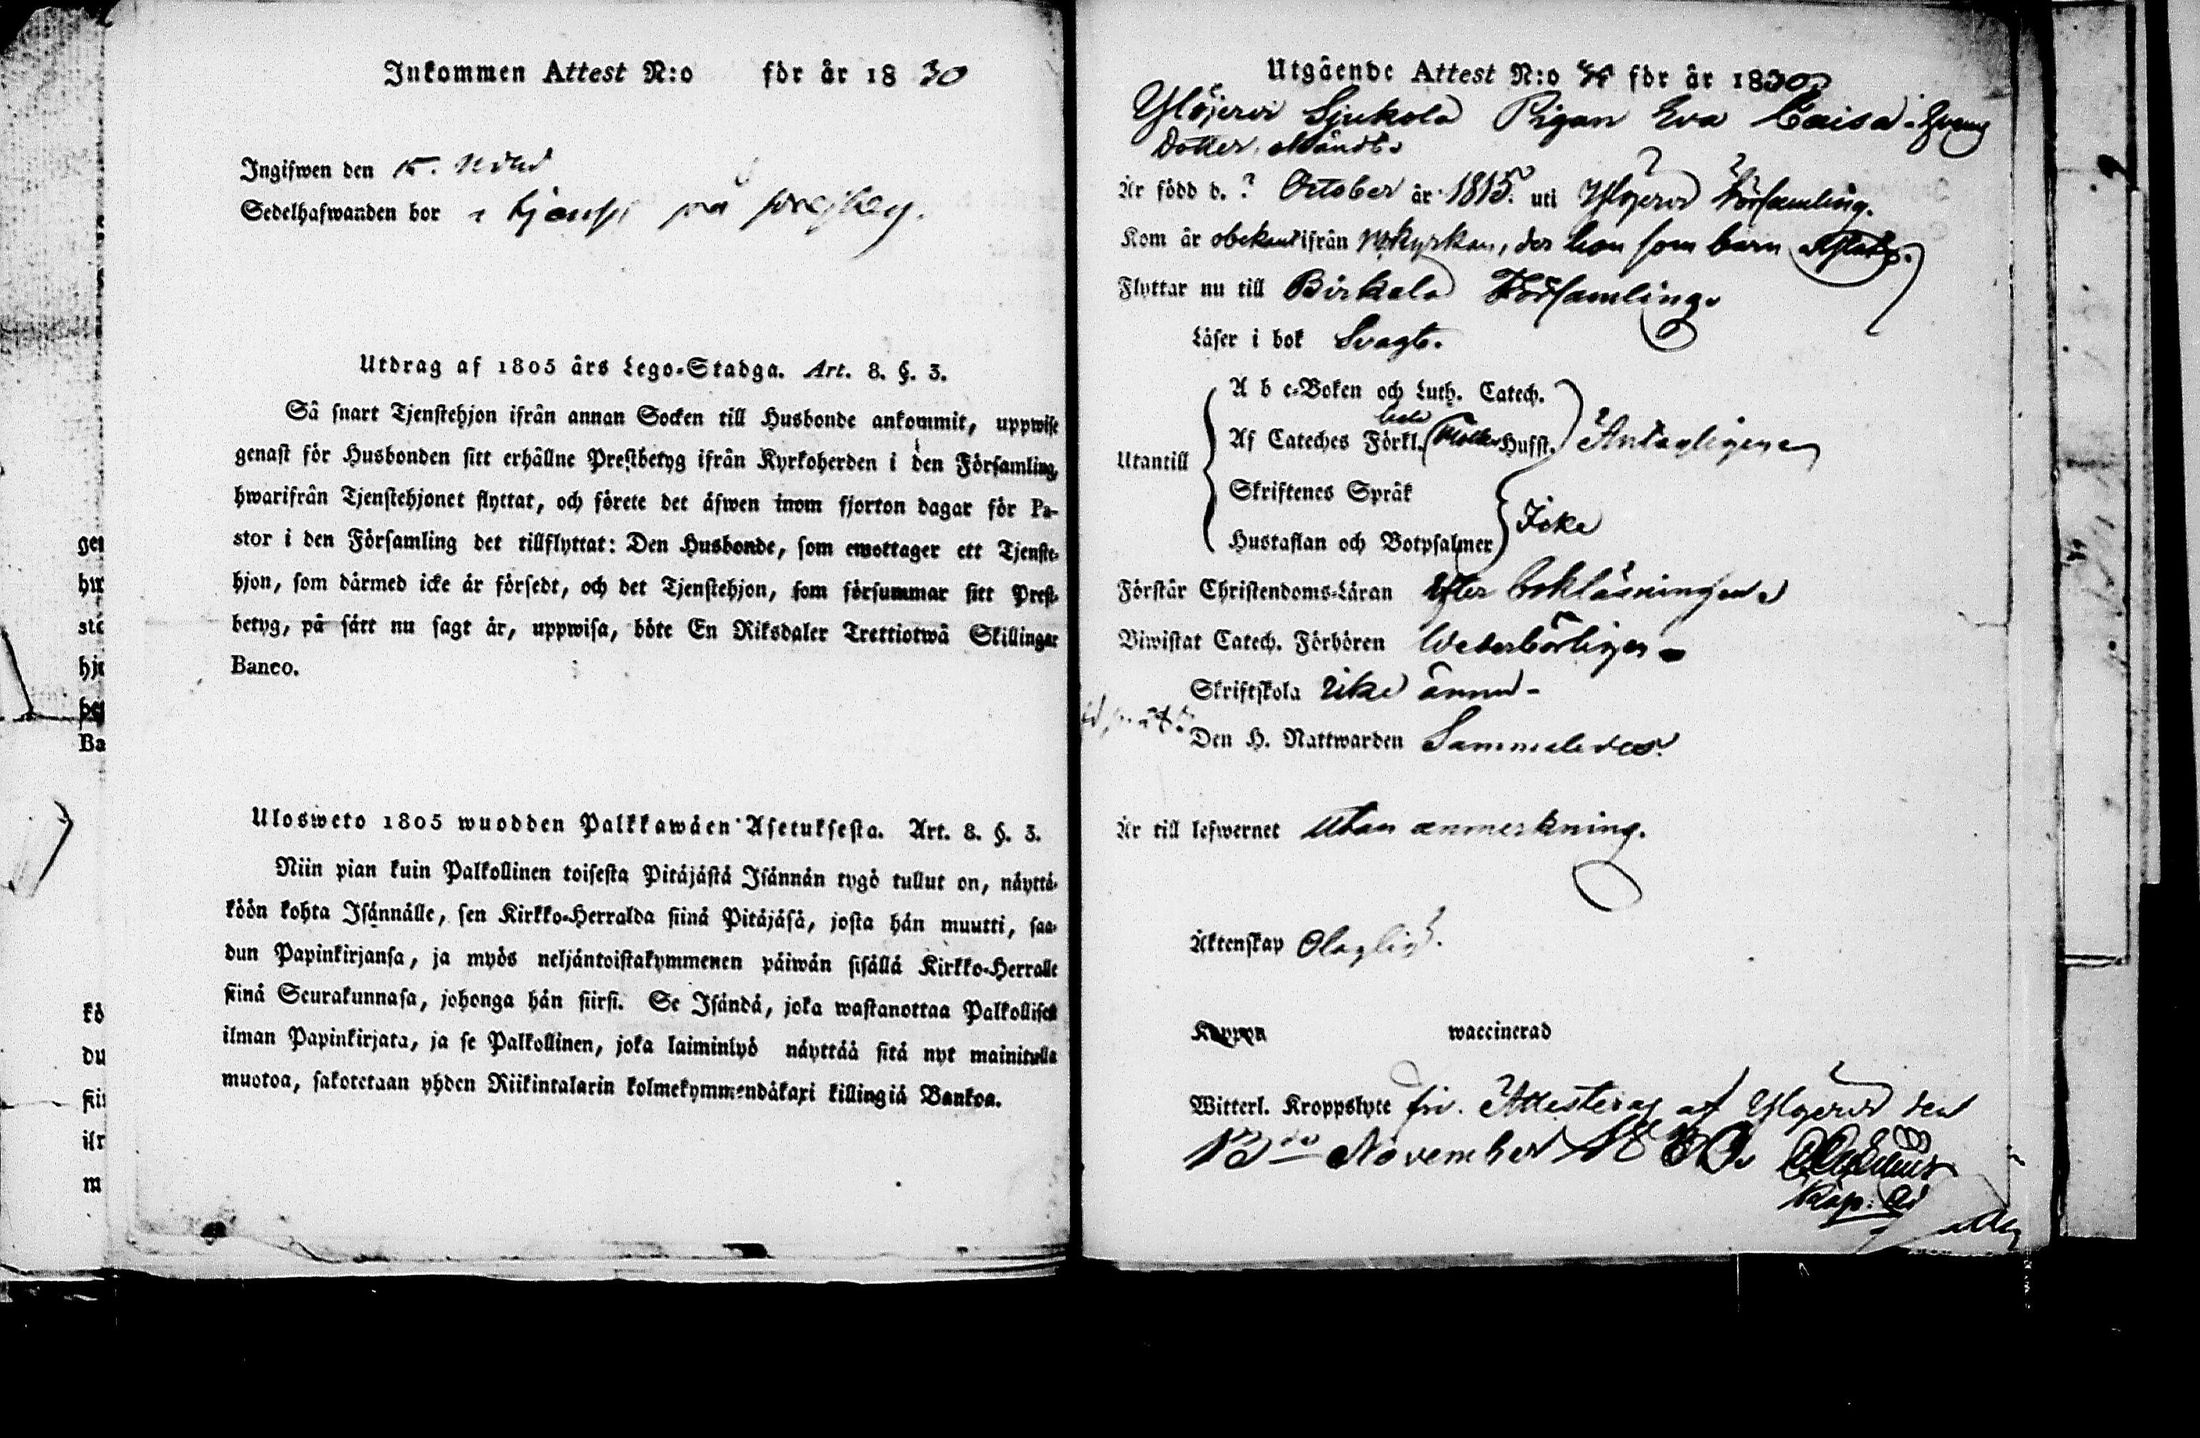 Inkommen Attest N:o för år 1830
Ingifwen den 15. Novemb
Sedelhafwanden bor i tjenst på
Utdrag af 1805 års Lego-Stadga. Art. 8. §. 3.
Så snart Tjenstehjon ifrån annan Socken till Husbonde ankommit, uppwise
genast för Husbonden sitt erhållne Prestbetyg ifrån Kyrkoherden i den Församling,
hwarifrån Tjenstehjonet flyttat, och förete det äfwen inom fjorton dagar för Pa-
stor i den Församling det tillflyttat: Den Husbonde, som emottager ett Tjenste-
hjon, som därmed icke är försedt, och det Tjenstehjon, som försummar sitt Prest-
betyg, på sätt nu sagt är, uppwisa, böte En Riksdaler Trettiotwå Skillingar
Banco.
Ulosweto 1805 wuodden Palkkawäen Asetuksesta. Art. 8. §. 3.
Niin pian kuin Palkollinen toisesta Pitäjästä Isännän tygö tullut on, näyttä-
köön kohta Isännälle, sen Kirkko-Herralda siinä Pitäjäsä, josta hän muutti, saa-
dun Papinkirjansa, ja myös neljäntoistakymmenen päiwän sisällä Kirkko-Herralle
siinä Seurakunnasa, johonga hän siirsi. Se Isändä, joka wastanottaa Palkollisen
ilman Papinkirjata, ja se Palkollinen, joka laiminlyö näyttää sitä nyt mainitulla
muotoa, sakotetaan yhden Riikintalarin kolmekymmendäkaxi killingiä Bankoa.
Utgående Attest N:o för år 1830
Ylöjervi Sjukola Pigan Eva Caisa
Dotter,
Är född d. ? October år 1815. uti Ylöjervi Församling.
Kom år obekant ifrån Nykyrkan, der hon som barn
Flyttar nu till Birkala Församling.
Läser i bok Svagt.
Utantill
A b c-Boken och Luth. Catech.
Af Cateches Förkl. Hufst. Antagligen
Skriftenes Språk
Hustaflan och Botpsalmer Icke
Förstår Christendoms-Läran efter bokläsningen
Biwistat Catech. Förhören Wederbörligen
Skriftskola icke ännu
Den H. Nattwarden Sammeledes.
Är till lefwernet utan anmerkning.
Äktenskap Olaglig.
Koppor waccinerad
Witterl. Kroppslyte fri. Attesteras af Ylöjervi den
13de November 1830.
Kap: